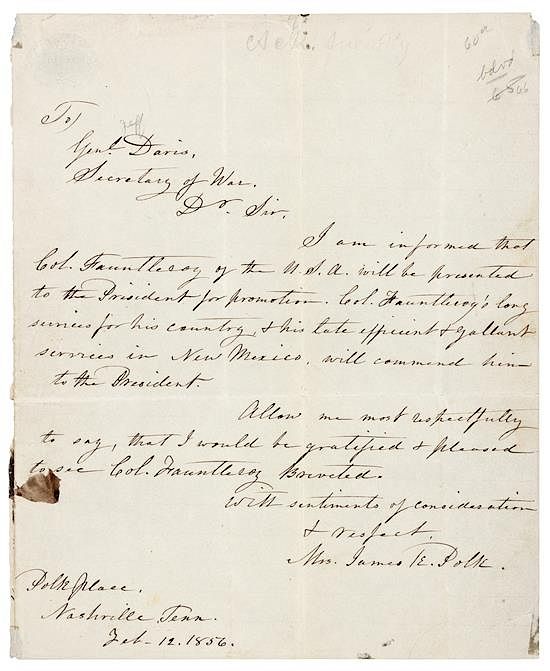 60
To/
Jeff
Genl. Davis,
Secretary of War.
Dr. Sir,
I am informed that
Col. Fauntleroy of the U.S.A. will be presented
to the President for promotion. Col. Fauntleroy's long
services for his country, & his late efficient & gallant
services in New Mexico, will commend him
to the President.
Allow me most respectfully
to say, that I would be gratified & pleased
to see Col. Fauntleroy Breveted.
With sentiments of consideration
& respect.
Mrs. James K. Polk.
Polk Place.
Nashville, Tenn.
Feb. 12. 1856.